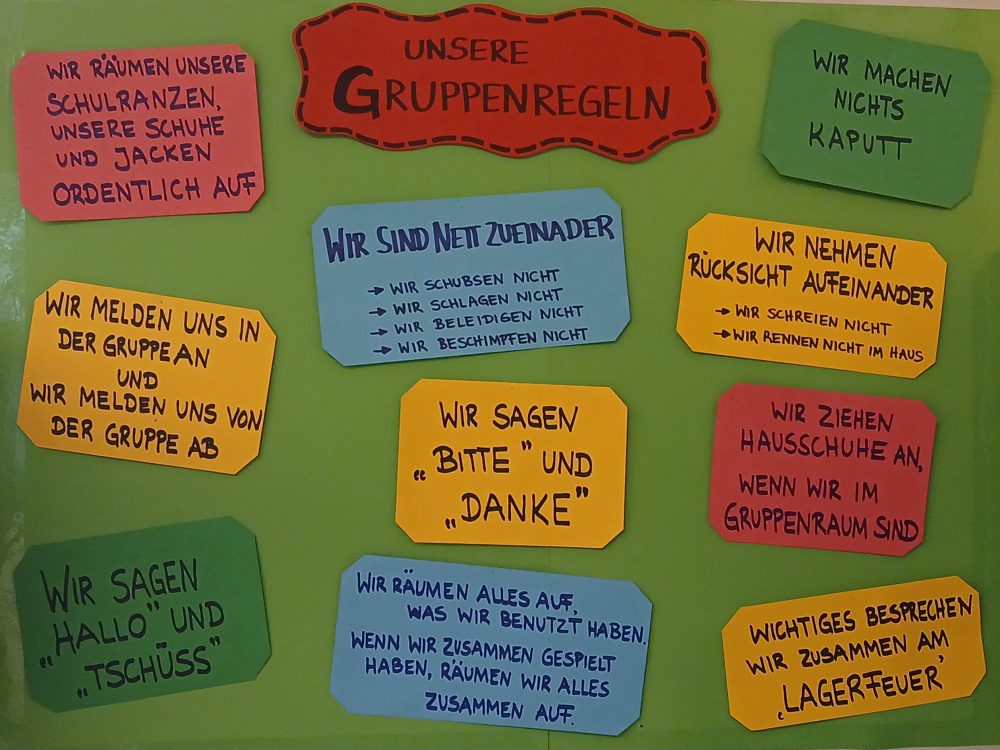 UNSERE
GRUPPENREGELN
WIR RÄUMEN UNSERE
SCHULRANZEN,
UNSERE SCHUHE
UND JACKEN
ORDENTLICH AUF
WIR MACHEN
NICHTS
KAPUTT
WIR SIND NETT ZUEINADER
→ WIR SCHUBSEN NICHT
→ WIR SCHLAGEN NICHT
→ WIR BELEIDIGEN NICHT
→ WIR BESCHIMPFEN NICHT
WIR NEHMEN
RÜCKSICHT AUFEINANDER
→ WIR SCHREIEN NICHT
→ WIR RENNEN NICHT IM HAUS
WIR MELDEN UNS IN
DER GRUPPE AN
UND
WIR MELDEN UNS VON
DER GRUPPE AB
WIR SAGEN
„BITTE" UND
„DANKE"
WIR ZIEHEN
HAUSSCHUHE AN,
WENN WIR IM
GRUPPENRAUM SIND
WIR SAGEN
„HALLO" UND
„TSCHÜSS"
WIR RÄUMEN ALLES AUF,
WAS WIR BENUTZT HABEN.
WENN WIR ZUSAMMEN GESPIELT
HABEN, RÄUMEN WIR ALLES
ZUSAMMEN AUF.
WICHTIGES BESPRECHEN
WIR ZUSAMMEN AM
‚LAGERFEUER'